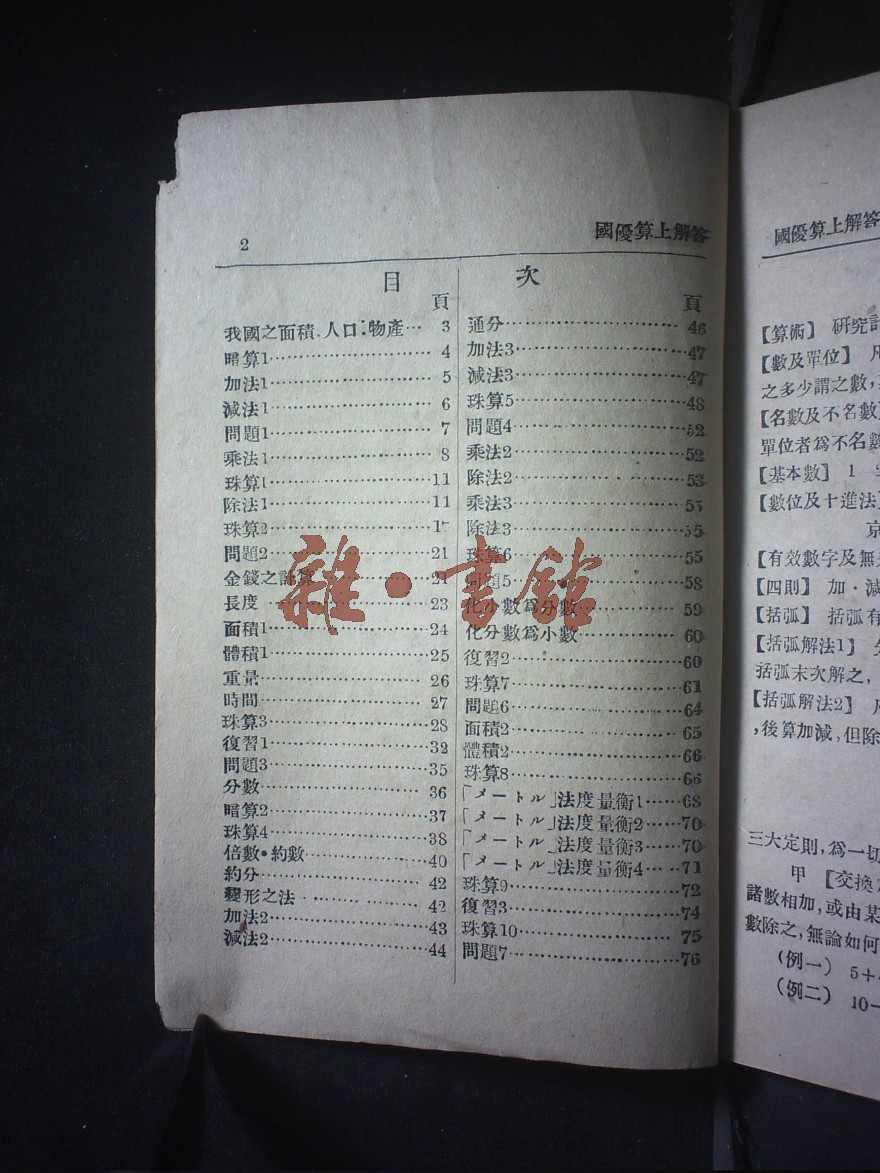 2
國優算上解答
目 次
頁
我國之面積.人口.物產… 3
暗算1……4
加法1……5
減法1……6
問題1……7
乘法1……8
珠算1……11
除法1……11
珠算2……
問題2……21
金錢之計算……21
長度……23
面積1……24
體積1……25
重量……26
時間……27
珠算3……28
復習1……32
問題3……35
分數……36
暗算2……37
珠算4……38
倍數•約數……40
約分……42
變形之法……42
加法2……43
減法2……44
頁
通分……46
加法3……47
減法3……47
珠算5……48
問題4……52
乘法2……52
除法2……53
乘法3……55
除法3……55
珠算6……55
問題5……58
化小數爲分數……59
化分數爲小數……60
復習2……60
珠算7……61
問題6……64
面積2……65
體積2……66
珠算8……66
「メートル」法度量衡1……68
「メートル」法度量衡2……70
「メートル」法度量衡3……70
「メートル」法度量衡4……71
珠算9……72
復習3……74
珠算10……75
問題7……76
雜·書館
國優算上解答
【算術】 研究
【數及單位】 凡
之多少謂之數,
【名數及不名數】
單位者爲不名數
【基本數】 1
【數位及十進法】
京
【有效數字及無
【四則】 加·減
【括弧】 括弧有
【括弧解法1】
括弧末次解之,
【括弧解法2】
,後算加減,但除
三大定則,爲一切
甲 【交換
諸數相加,或由某
數除之,無論如何
(例一) 5+
(例二) 10-